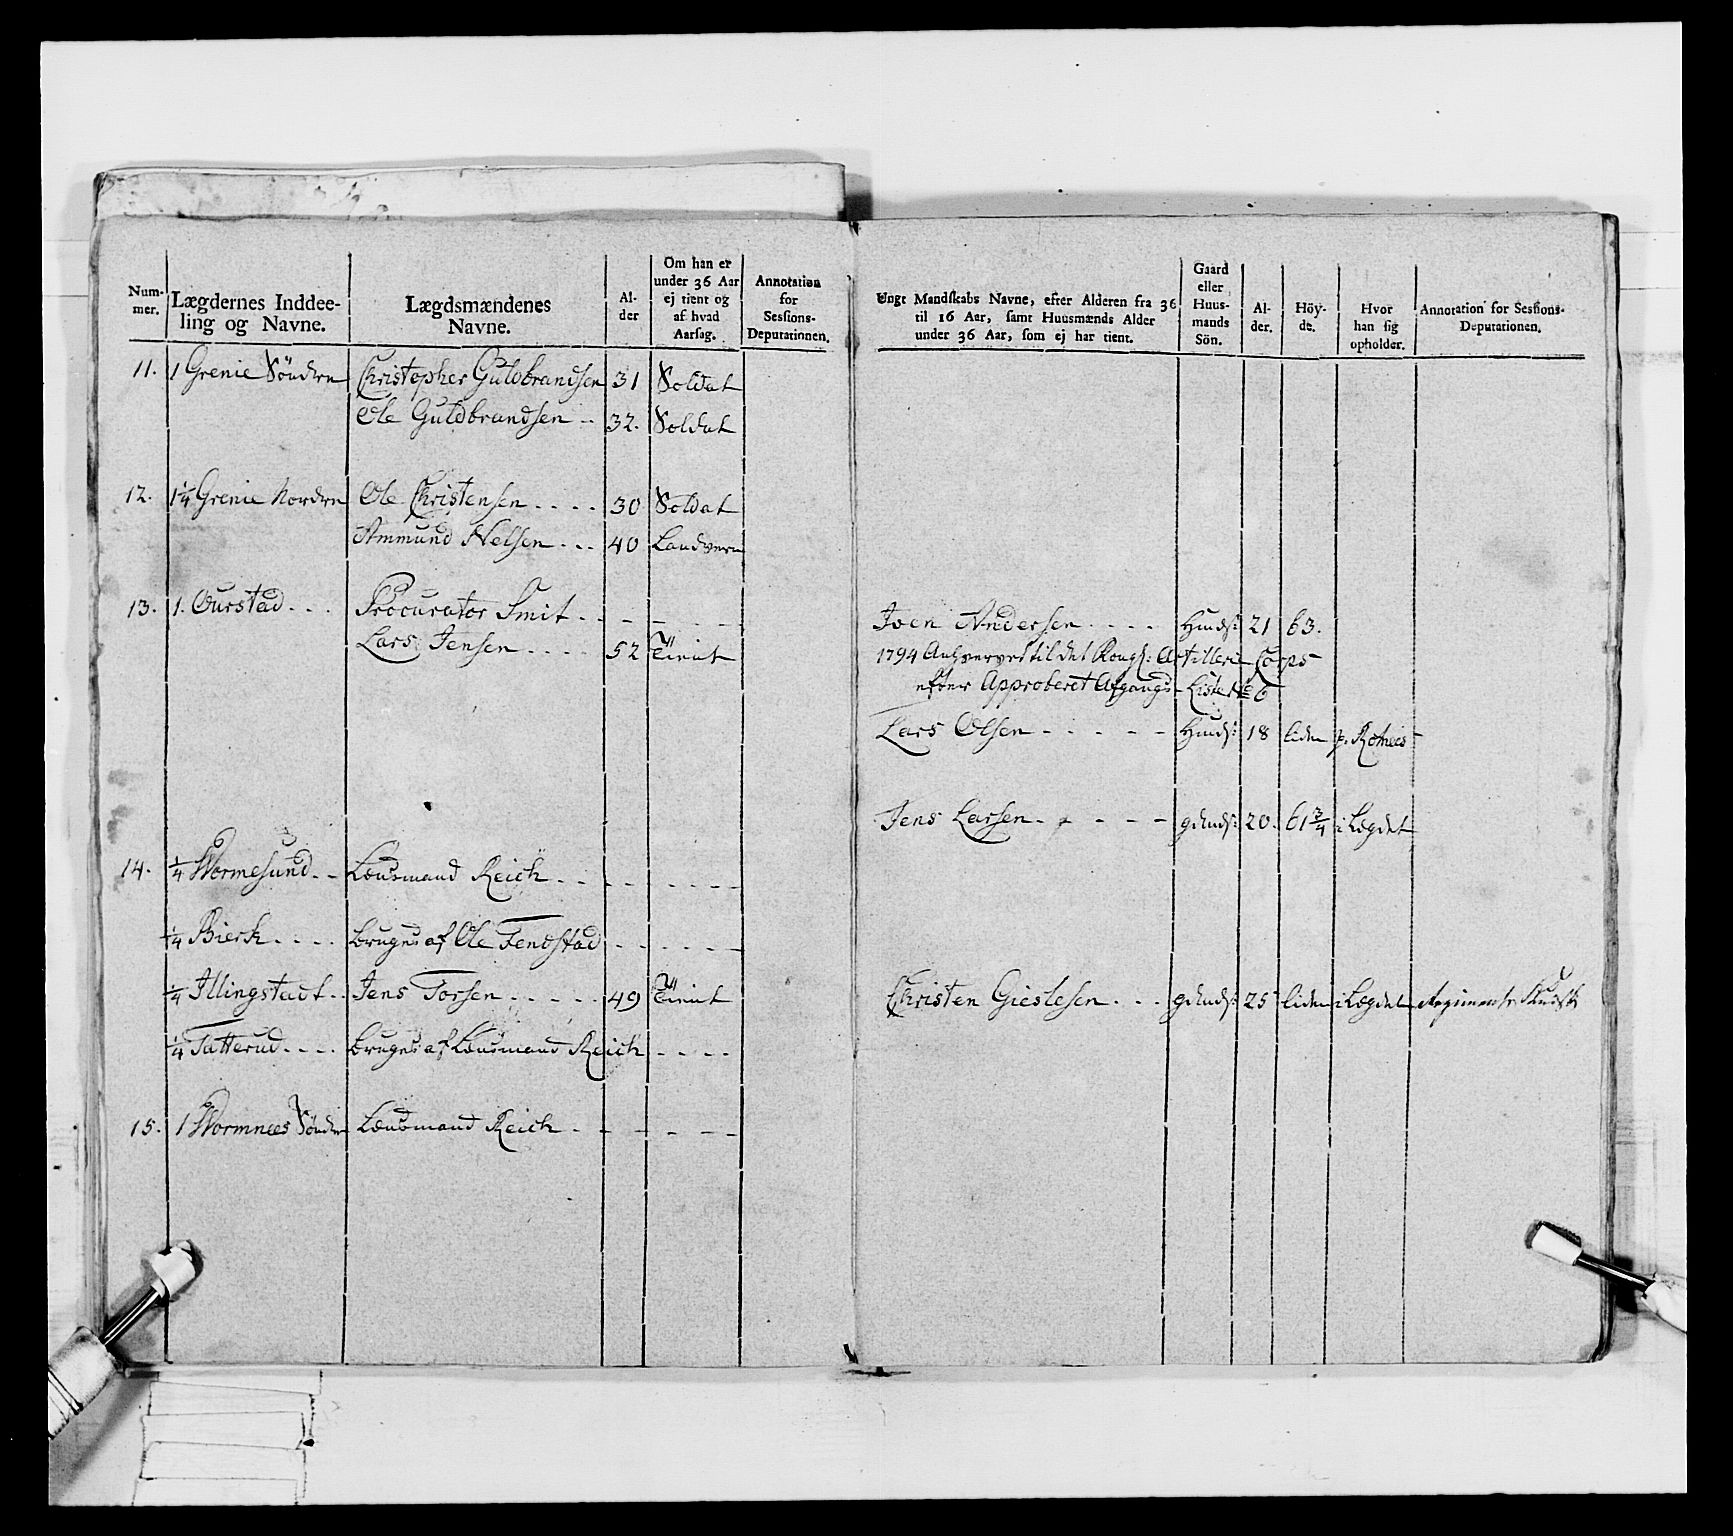 Num-
mer.
Lægdernes Inddee-
ling og Navne.
Lægdsmændenes
Navne.
Al-
der
Om han er
under 36 Aar
ej tient og
af hvad
Aarsag.
Annotation
for
Sessions-
Deputationen.
11. 1 Grenie Söndre Christopher Guldbrandsen 31 Soldat
Ole Guldbrandsen 32. Soldat
12. 1 1/4 Grenie Nordre Ole Christensen 30 Soldat
Ammund Nelsen 40 Landvern
13. 1. Ourstad Procurator Smit
Lars Jensen 52 Tient
14. 1/4 Wormesund Lensmand Reich
1/4 Bierk bruges af Ole Tendstad
1/4 Illingstadt Jens Torsen 49 Tient
1/4 Tatterud bruges af Lensmand Reich
15. 1 Wormnæs Söndre Lensmand Reich
Ungt Mandskabs Navne, efter Alderen fra 36
til 16 Aar, samt Huusmænds Alder
under 36 Aar, som ej har tient.
Gaard
eller
Huus-
mands
Sön.
Al-
der.
Höy-
de.
Hvor
han sig
opholder.
Annotation for Sessions-
Deputationen.
Iver Andersen Huuds: 21 63.
1794 til det Kongl: Artillerie Corps
efter Approberet Afgangs Liste № 6
Lars Olsen Huuds: 18 liden p. Romees
Jens Larsen gdmds: 20. 61 3/4 i Lægdet
Christen Gieslesen gdmds: 25 liden i Lægdet Regiments